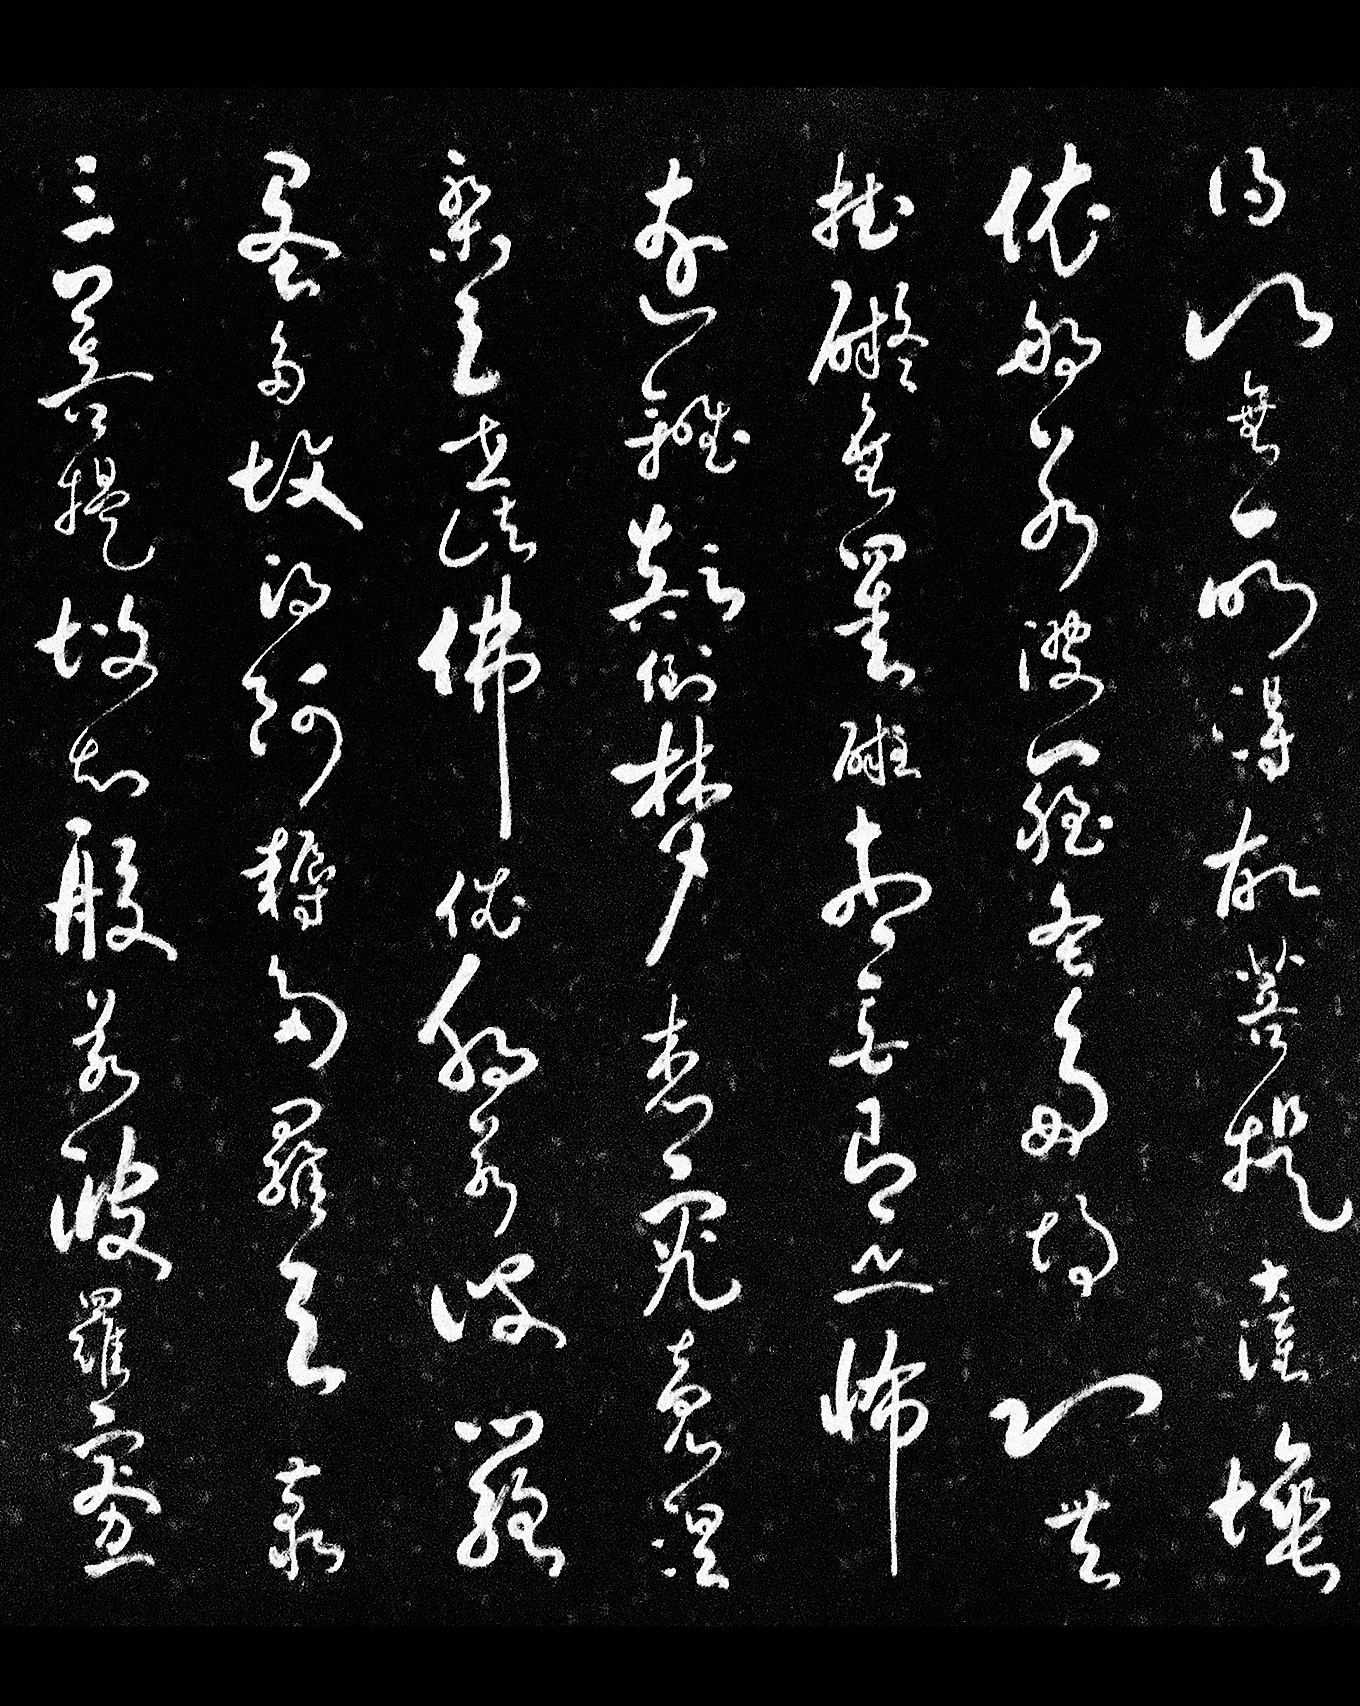 得以無所得故菩提薩埵
依般若波羅蜜多故心無
挂礙無罣礙故無有恐怖
遠離顛倒夢想究竟涅
槃三世諸佛依般若波羅
蜜多故得阿耨多羅三藐
三菩提故知般若波羅蜜